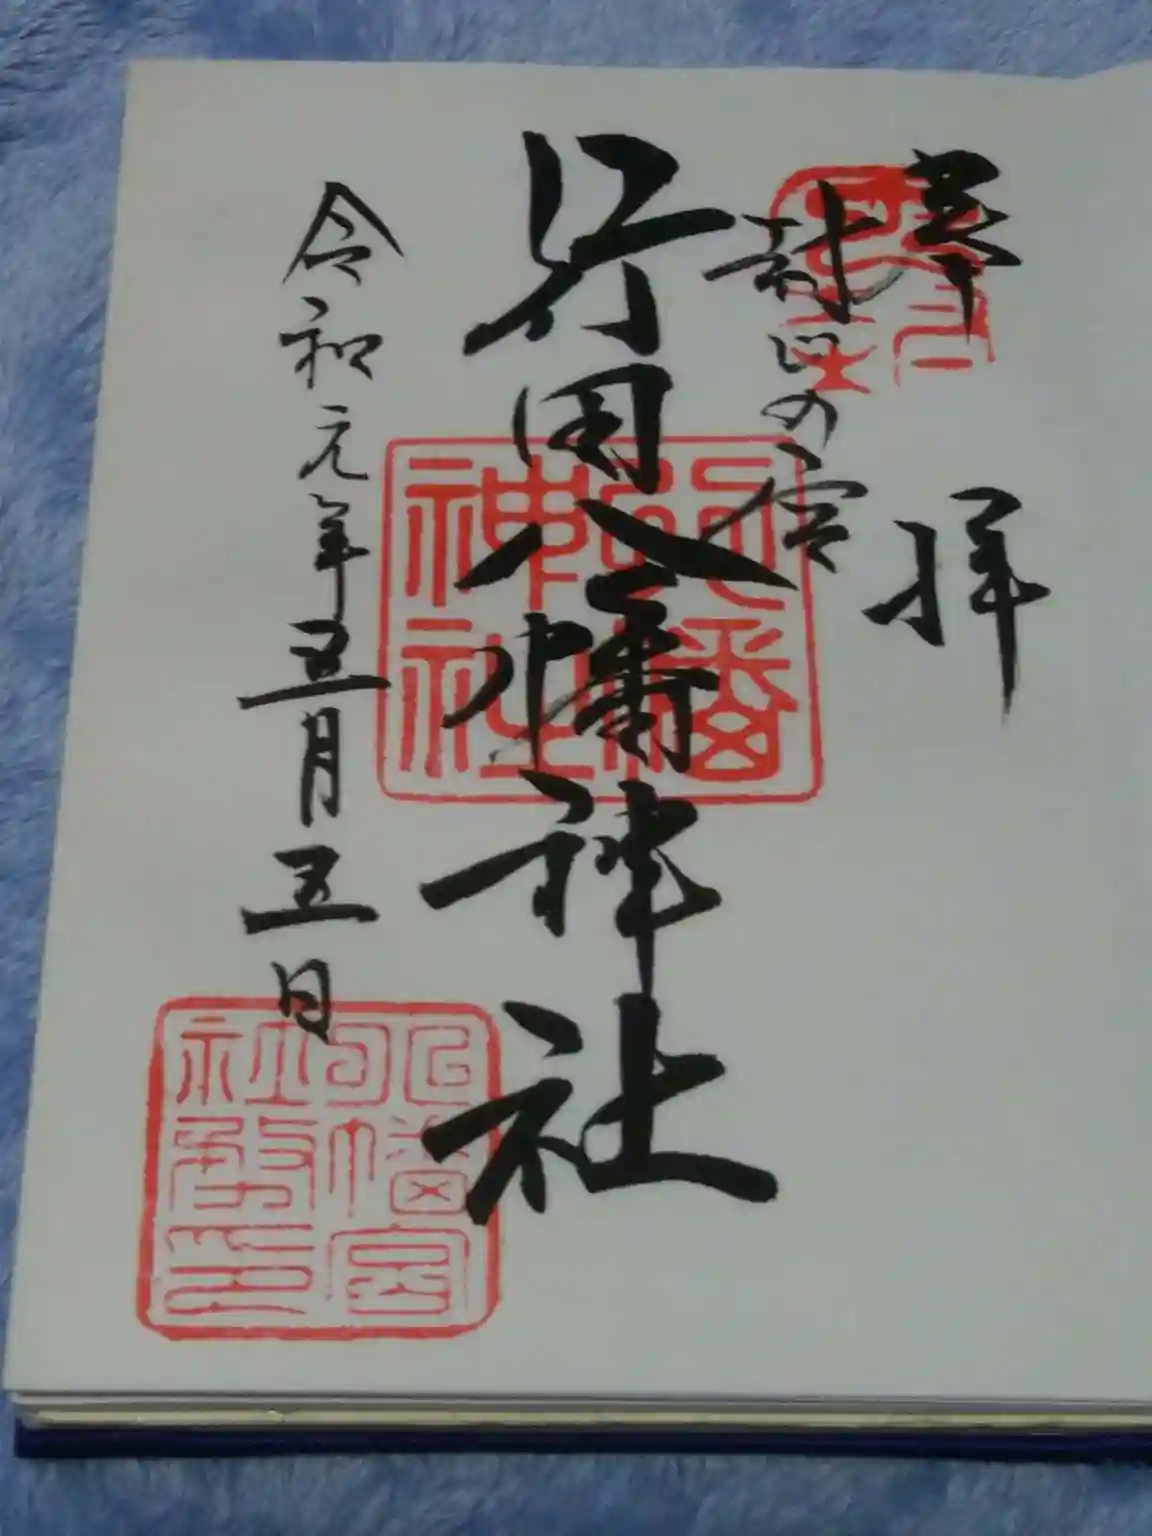 奉拝
封じの宮
行田八幡神社
令和元年五月五日
八幡神社